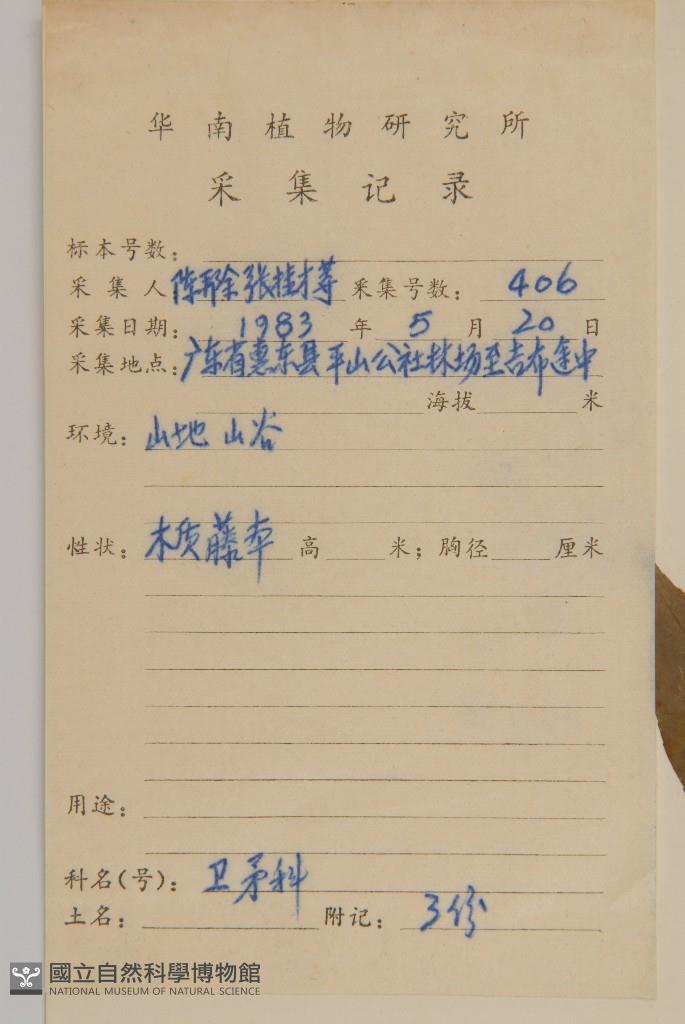 华南植物研究所
采集记录
标本号数：
采集人 陈邦余 张桂才等 采集号数： 406
采集日期： 1983 年 5 月 20 日
采集地点： 广东省惠东县平山公社林场至吉布途中
海拔 米
环境： 山地 山谷
性状： 木质藤本 高 米；胸径 厘米
用途：
科名(号)： 卫矛科
土名： 附记： 3份
國立自然科學博物館
NATIONAL MUSEUM OF NATURAL SCIENCE